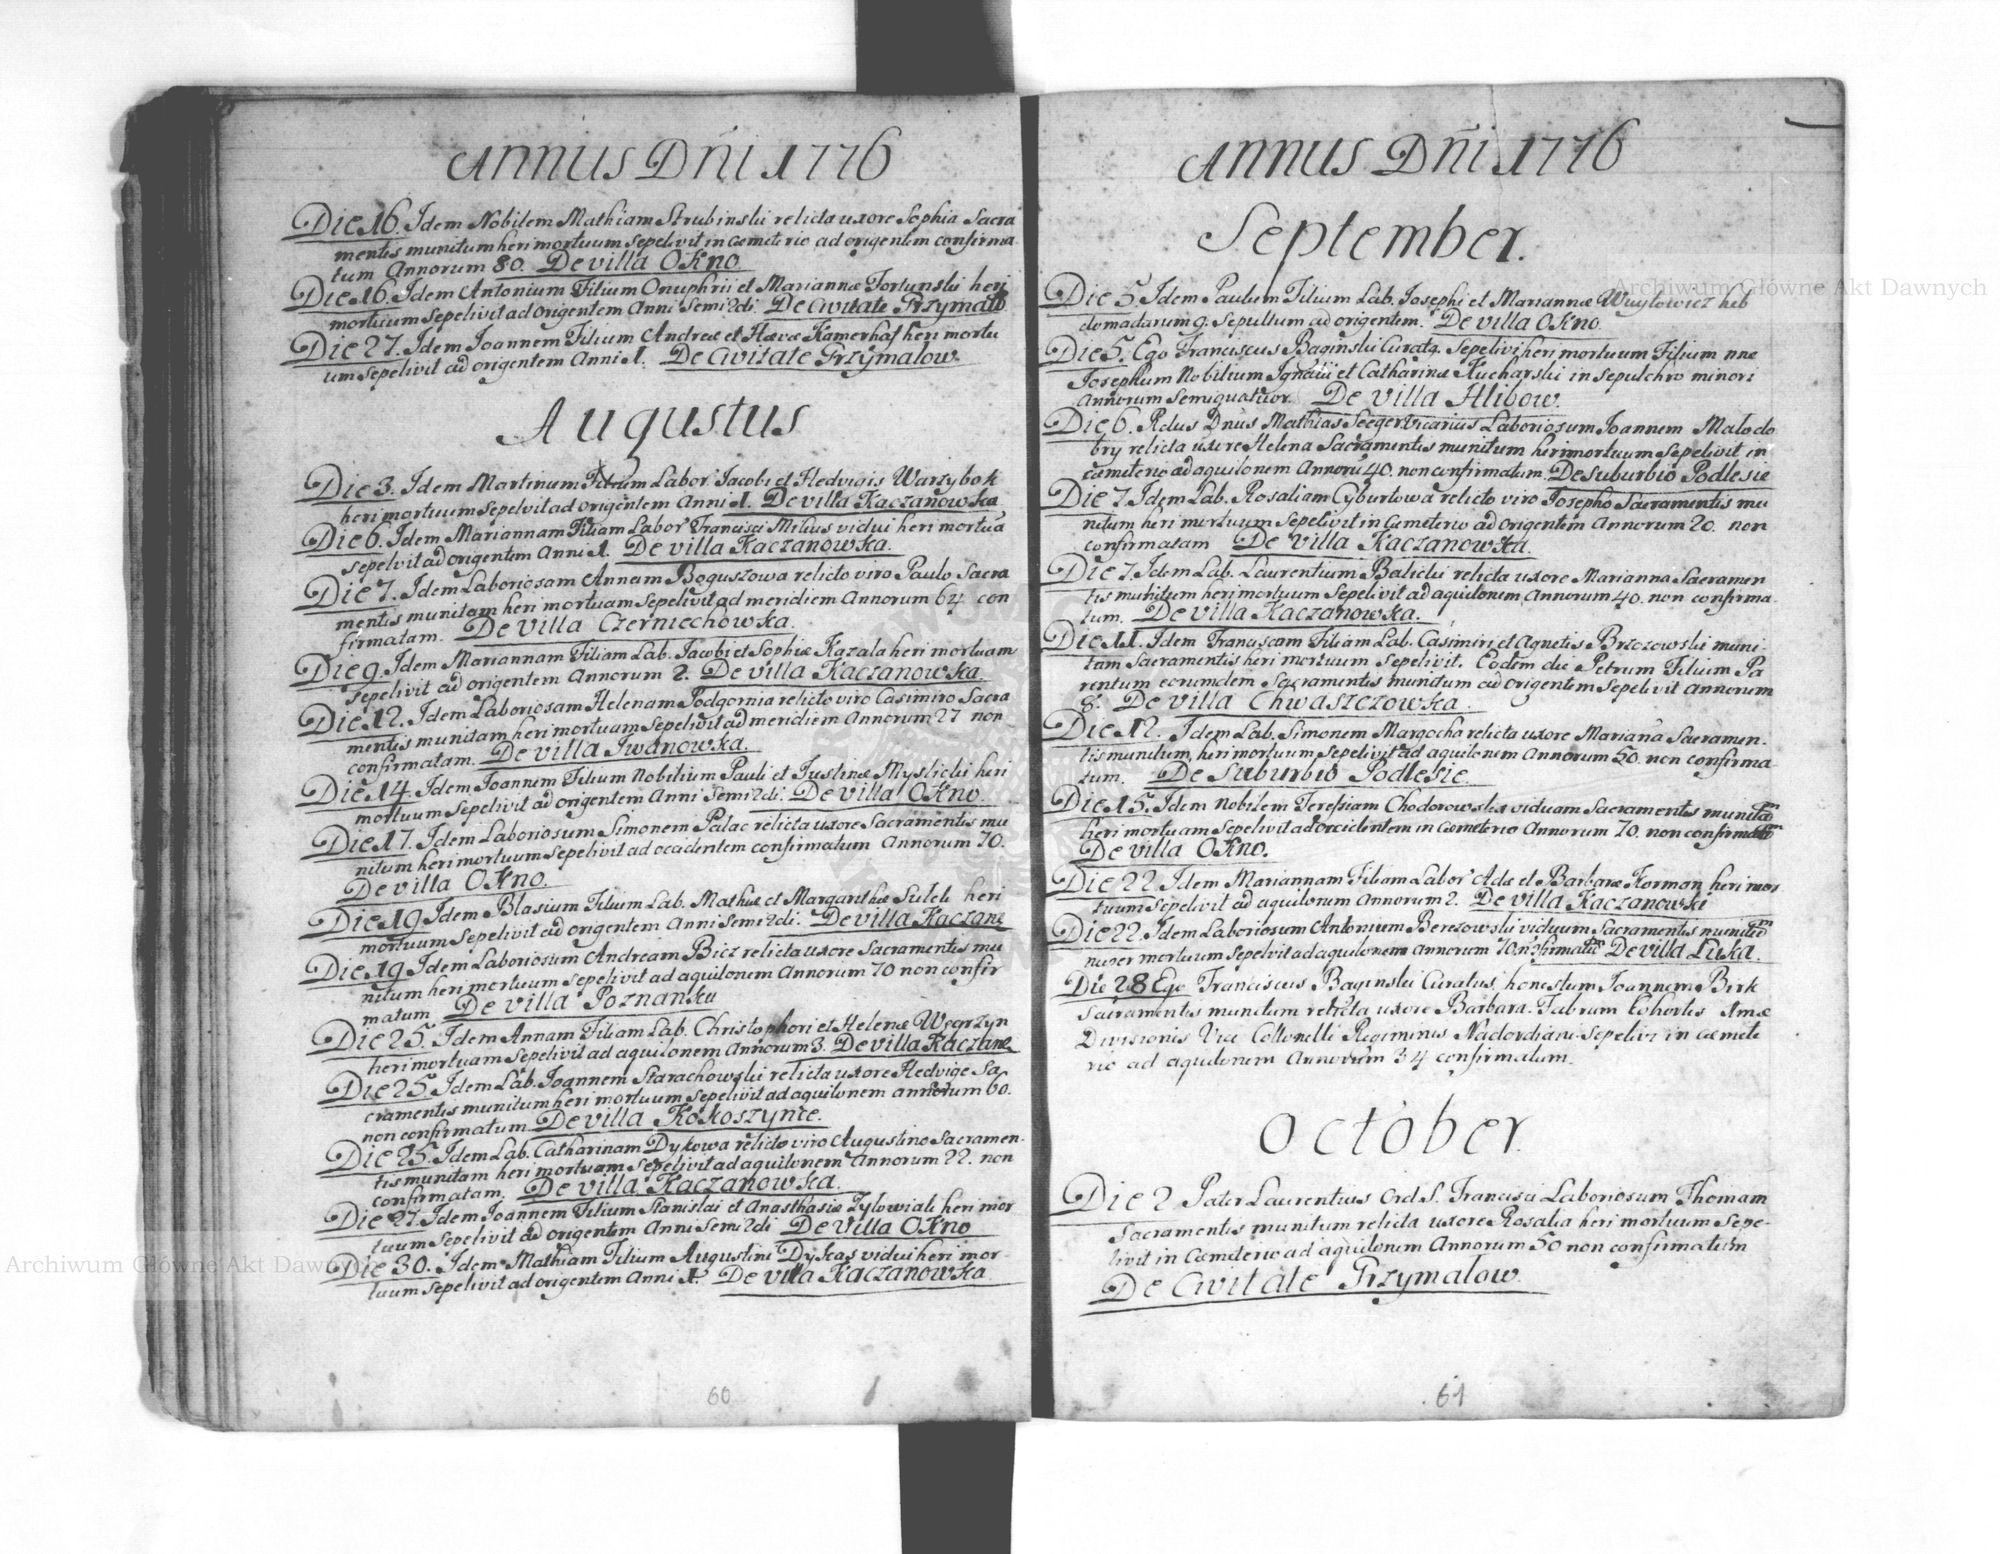 Annus Dñi 1776
Die 16. Idem Nobilem Mathiam Strubinski relicta uxore Sophia Sacra
mentis munitum heri mortuum sepelivit in Cæmeterio ad origentem confirma
tum Annorum 80. De villa Okno
Die 16. Idem Antonium Filium Onuphrii et Mariannæ Fortunski heri
mortuum sepelivit ad origentem Anni Semi2di. De Civitate Grzymalo
Die 27. Idem Joannem Filium Andreæ et Hævæ Kamerhaf heri mortu
um sepelivit ad origentem Anni 1. De Civitate Grzymalow
Augustus
Die 3. Idem Martinum Filium Labor. Jacobi et Hedvigis Warzybok
heri mortuum sepelvit ad origentem Anni 1. De villa Kaczanowka
Die 6. Idem Mariannam Filiam Labor Francisci Milius vidui heri mortuã
sepelvit ad origentem Anni 1. De villa Kaczanowka.
Die 7. Idem Laboriosam Annam Boguszowa relicto viro Paulo Sacra
mentis munitam heri mortuam sepelivit ad meridiem Annorum 64 con
firmatam. De villa Czerniechowka.
Die 9. Idem Mariannam Filiam Lab. Jacobi et Sophiæ Kazala heri mortuam
sepelivit ad origentem Annorum 2. De villa Kaczanowka.
Die 12. Idem Laboriosam Helenam Podgornia relicto viro Casimiro Sacra
mentis munitam heri mortuam sepelivit ad meridiem Annorum 27 non
confirmatam. De villa Iwanowka.
Die 14. Idem Joannem Filium Nobilium Pauli et Justinæ Myslicki heri
mortuum sepelivit ad origentem Anni Semi2di. De villa Okno.
Die 17. Idem Laboriosum Simonem Palac relicta uxore Sacramentis mu
nitum heri mortuum sepelivit ad occidentem confirmatum Annorum 70.
De villa Okno.
Die 19 Idem Blasium Filium Lab. Mathiæ et Margarithæ Suleli heri
mortuum sepelivit ad origentem Anni Semi2di. De villa Kaczane
Die 19 Idem Laboriosum Andream Bicz relicta uxore Sacramentis mu
nitum heri mortuum sepelivit ad aquilonem Annorum 70 non confir
matum De villa Poznanka
Die 25. Idem Annam Filiam Lab. Christophori et Helenæ Węgrzyn
heri mortuam sepelivit ad aquilonem Annorum 3. De villa Kaczane
Die 25. Idem Lab. Joannem Starachowski relicta uxore Hedvige Sa
cramentis munitum heri mortuum sepelivit ad aquilonem annorum 60.
non confirmatum De villa Kokoszynce.
Die 25. Idem Lab. Catharinam Dykowa relicto viro Augustino Sacramen-
tis munitam heri mortuam sepelivit ad aquilonem Annorum 22. non
confirmatam. De villa Kaczanowka.
Die 27. Idem Joannem Filium Stanislai et Anasthasiæ Zylowiali heri mor
tuum sepelivit ad origentem Anni Semi2di De villa Okno
Die 30. Idem Mathiam Filium Augustini Dykas vidui heri mor-
tuum sepelivit ad origentem Anni 1. De villa Kaczanowka
60
Annus Dñi 1776
September.
Die 5. Idem Paulum Filium Lab. Josephi et Mariannæ Wuytowicz heb
domadarum 9. sepultum ad origentem. De villa Okno
Die 5. Ego Franciscus Baginski Curatq. sepelivi heri mortuum Filium nne
Josephum Nobilium Ignatii et Catharinæ Kucharski in sepulchro minori
Annorum Semiquatuor. De villa Hlibow.
Die 6. Rdus Dnus Mathias Seeger Vicarius Laboriosum Joannem Malodo
bry relicta uxore Helena Sacramentis munitum heri mortuum sepelivit in
cæmeterio ad aquilonem Annoru 40. non confirmatum. De suburbio Podlesie
Die 7. Idem Lab. Rosaliam Cyburlowa relicto viro Josepho Sacramentis mu
nitum heri mortuum sepelivit in Cæmeterio ad origentem Annorum 20. non
confirmatam De villa Kaczanowka.
Die 7. Idem Lab. Laurentium Balicki relicta uxore Marianna Sacramen
tis munitum heri mortuum sepelivit ad aquilonem Annorum 40. non confirma
tum. De villa Kaczanowka.
Die 11. Idem Franciscam Filiam Lab. Casimiri et Agnetis Brzozowski muni-
tam Sacramentis heri mortuum sepelivit. Eodem die Petrum Filium Pa
rentum eorumdem Sacramentis munitum ad origentem sepelivit Annorum
8. De villa Chwaszczowka.
Die 12. Idem Lab. Simonem Margocha relicta uxore Mariana Sacramen-
tis munitum, heri mortuum sepelivit ad aquilonem Annorum 50. non confirma-
tum. De suburbio Podlesie.
Die 15. Idem Nobilem Teressiam Chodorowska viduam Sacramentis munitã
heri mortuam sepelivit ad occidentem in Cæmeterio Annorum 70. non confirmatã
De villa Okno.
Die 22. Idem Mariannam Filiam Labor Adæ et Barbaræ Kormon heri mor
tuum sepelivit ad aquilonum Annorum 2. De villa Kaczanowki
Die 22. Idem Laboriosum Antonium Berezowski viduum Sacramentis munitum
nuper mortuum sepelvit ad aquilonem Annorum 70. De villa Luka.
Die 28 Ego Franciscus Baginski Curatus, honestum Joannem Birk
Sacramentis munitum relicta uxore Barbara. Fabrum Cohortis Amæ
Divisionis Vice Collonelli Regiminis Nadordiani sepelivi in Cæmete
rio ad aquilonem Annorum 34 confirmatum.
October.
Die 2 Pater Laurentius Ord S. Francisci Laboriosum Thomam
Sacramentis munitum relicta uxore Rosalia heri mortuum sepe-
livit in Cæmeterio ad aquilonem Annorum 50 non confirmatum
De Civitate Grzymalow.
61
Archiwum Główne Akt Dawnych
Archiwum Główne Akt Dawnych